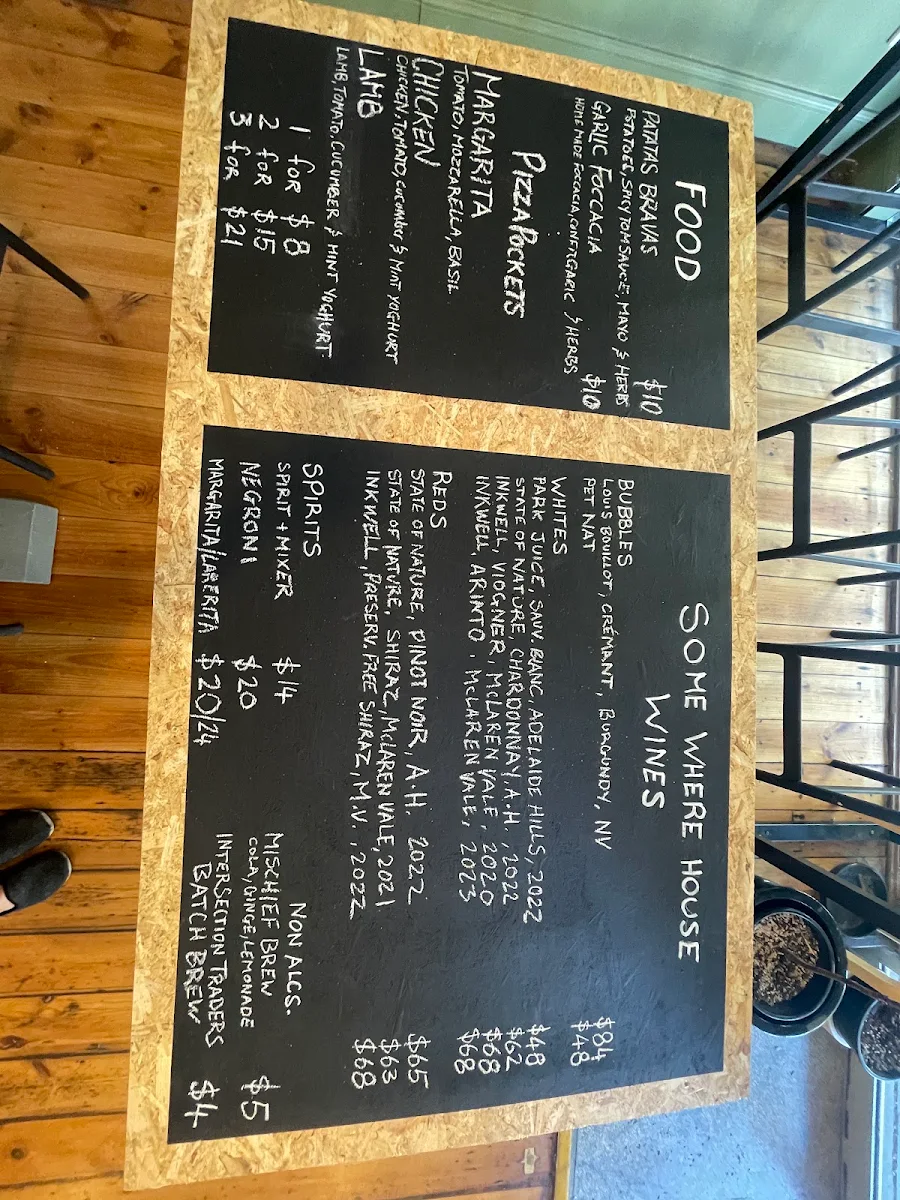 FOOD
PATATAS BRAVAS $10
POTATOES, SPICY TOM SAUCE, MAYO & HERBS
GARLIC FOCCACIA $10
HOMEMADE FOCCACIA, CONF, GARLIC & HERBS
PIZZA POCKETS
MARGARITA
TOMATO, MOZZARELLA, BASIL
CHICKEN
CHICKEN, TOMATO, CUCUMBER & MINT YOGHURT
LAMB
LAMB, TOMATO, CUCUMBER & MINT YOGHURT
1 for $8
2 for $15
3 for $21
SOME WHERE HOUSE
WINES
BUBBLES
LOUIS BOUILLOT, CRÉMANT, BURGUNDY, NV $84
PET NAT $48
WHITES
PARK JUICE, SAUV. BLANC, ADELAIDE HILLS, 2022 $48
STATE OF NATURE, CHARDONNAY, A.H., 2022 $62
INKWELL, VIOGNER, MCLAREN VALE, 2020 $68
INKWELL, ARINTO, MCLAREN VALE, 2023 $68
REDS
STATE OF NATURE, PINOT NOIR, A.H. 2022 $65
STATE OF NATURE, SHIRAZ, MCLAREN VALE, 2021 $63
INKWELL, PRESERV. FREE SHIRAZ, M.V., 2022 $68
SPIRITS
SPIRIT + MIXER $14
NEGRONI $20
MARGARITA/LARERITA $20/24
NON ALCS.
MISCHIEF BREW
COLA, GINGE, LEMONADE $5
INTERSECTION TRADERS
BATCH BREW $4